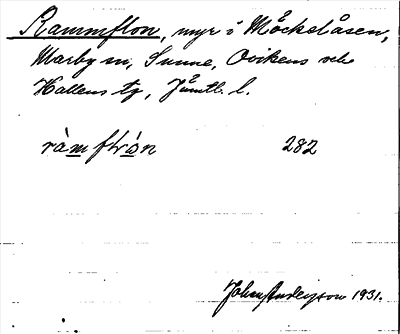 Rammflon, myr i Möckelåsen,
Marby sn, Sunne, Ovikens och
Hallens tg, Jämtl. l.
ràmftròn 282
Johan Anderson 1931.